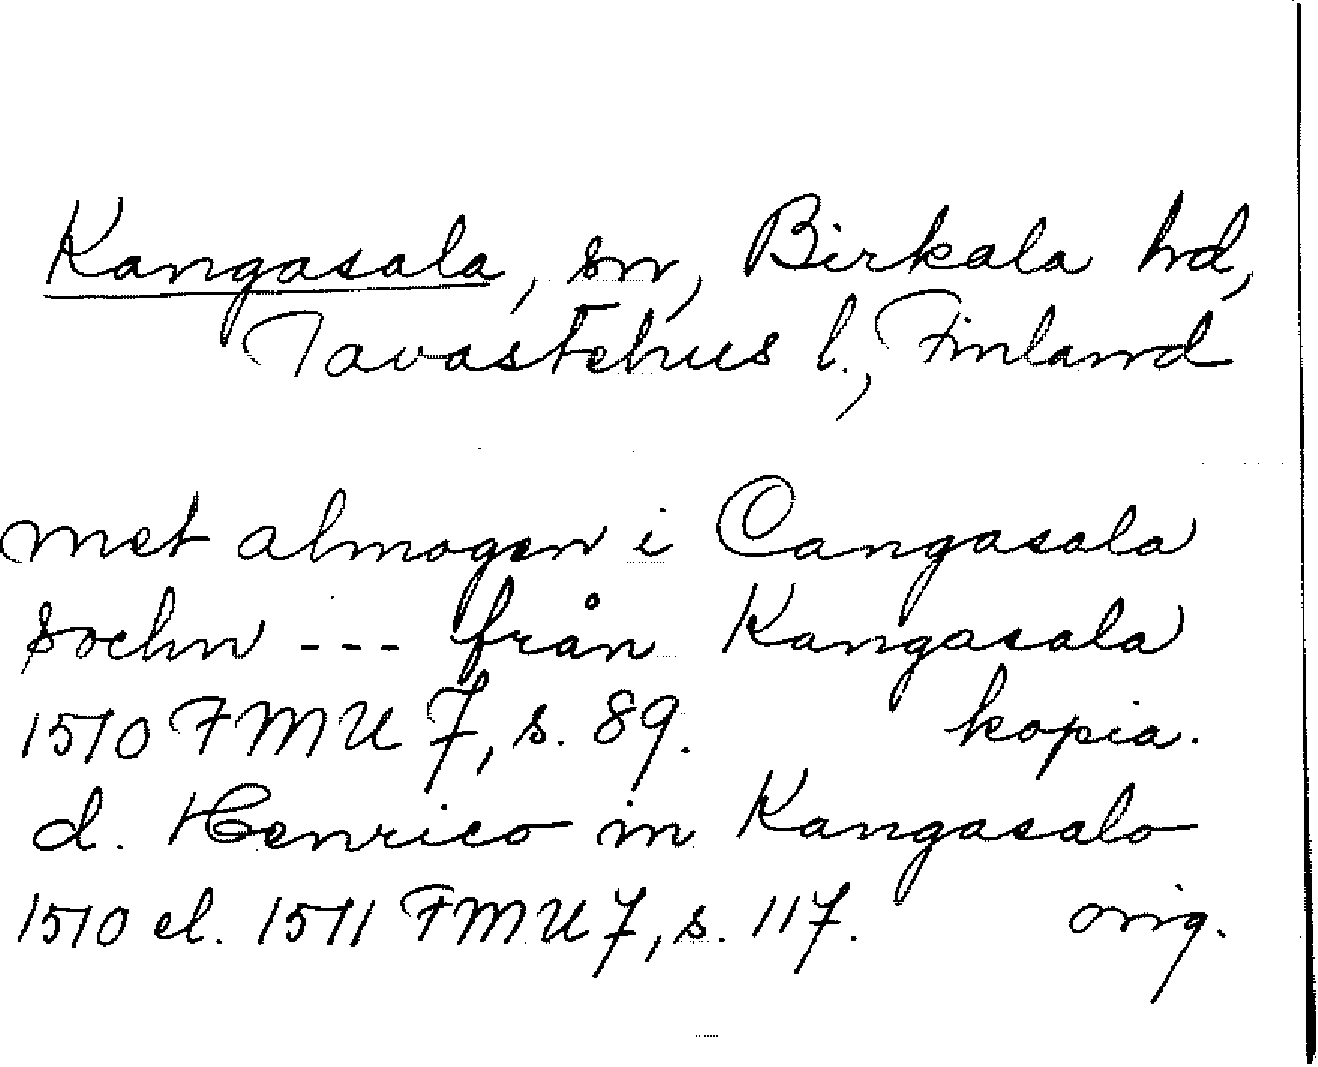 Kangasala, sn, Birkala hd,
Tavastehus l., Finland
met almogen i Cangasala
sochn --- från Kangasala
1510 FMU 7, s. 89. kopia.
d. Henrico in Kangasalo
1510 el. 1511 FMU 7, s. 117. orig.